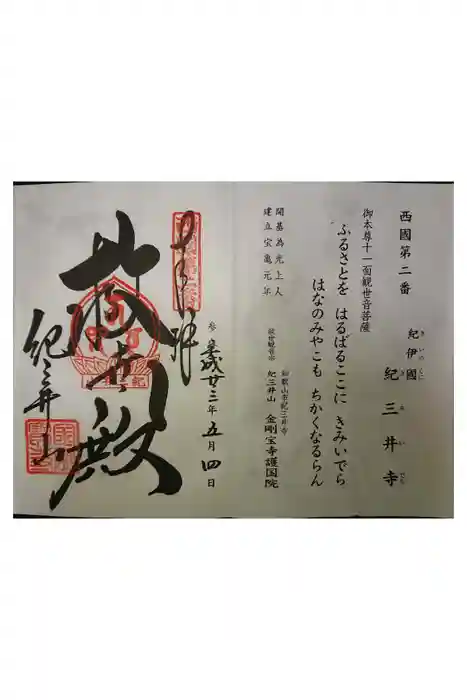 西國第二番
紀伊國 紀三井寺
きいのくに きみいでら
御本尊十一面観世音菩薩
ふるさとを はるばるここに きみいでら
はなのみやこも ちかくなるらん
開基為光上人
建立宝亀元年
救世観音宗
和歌山市紀三井寺
紀三井山 金剛宝寺護国院
参 平成廿三年五月四日
奉拝
救世殿
紀三井山